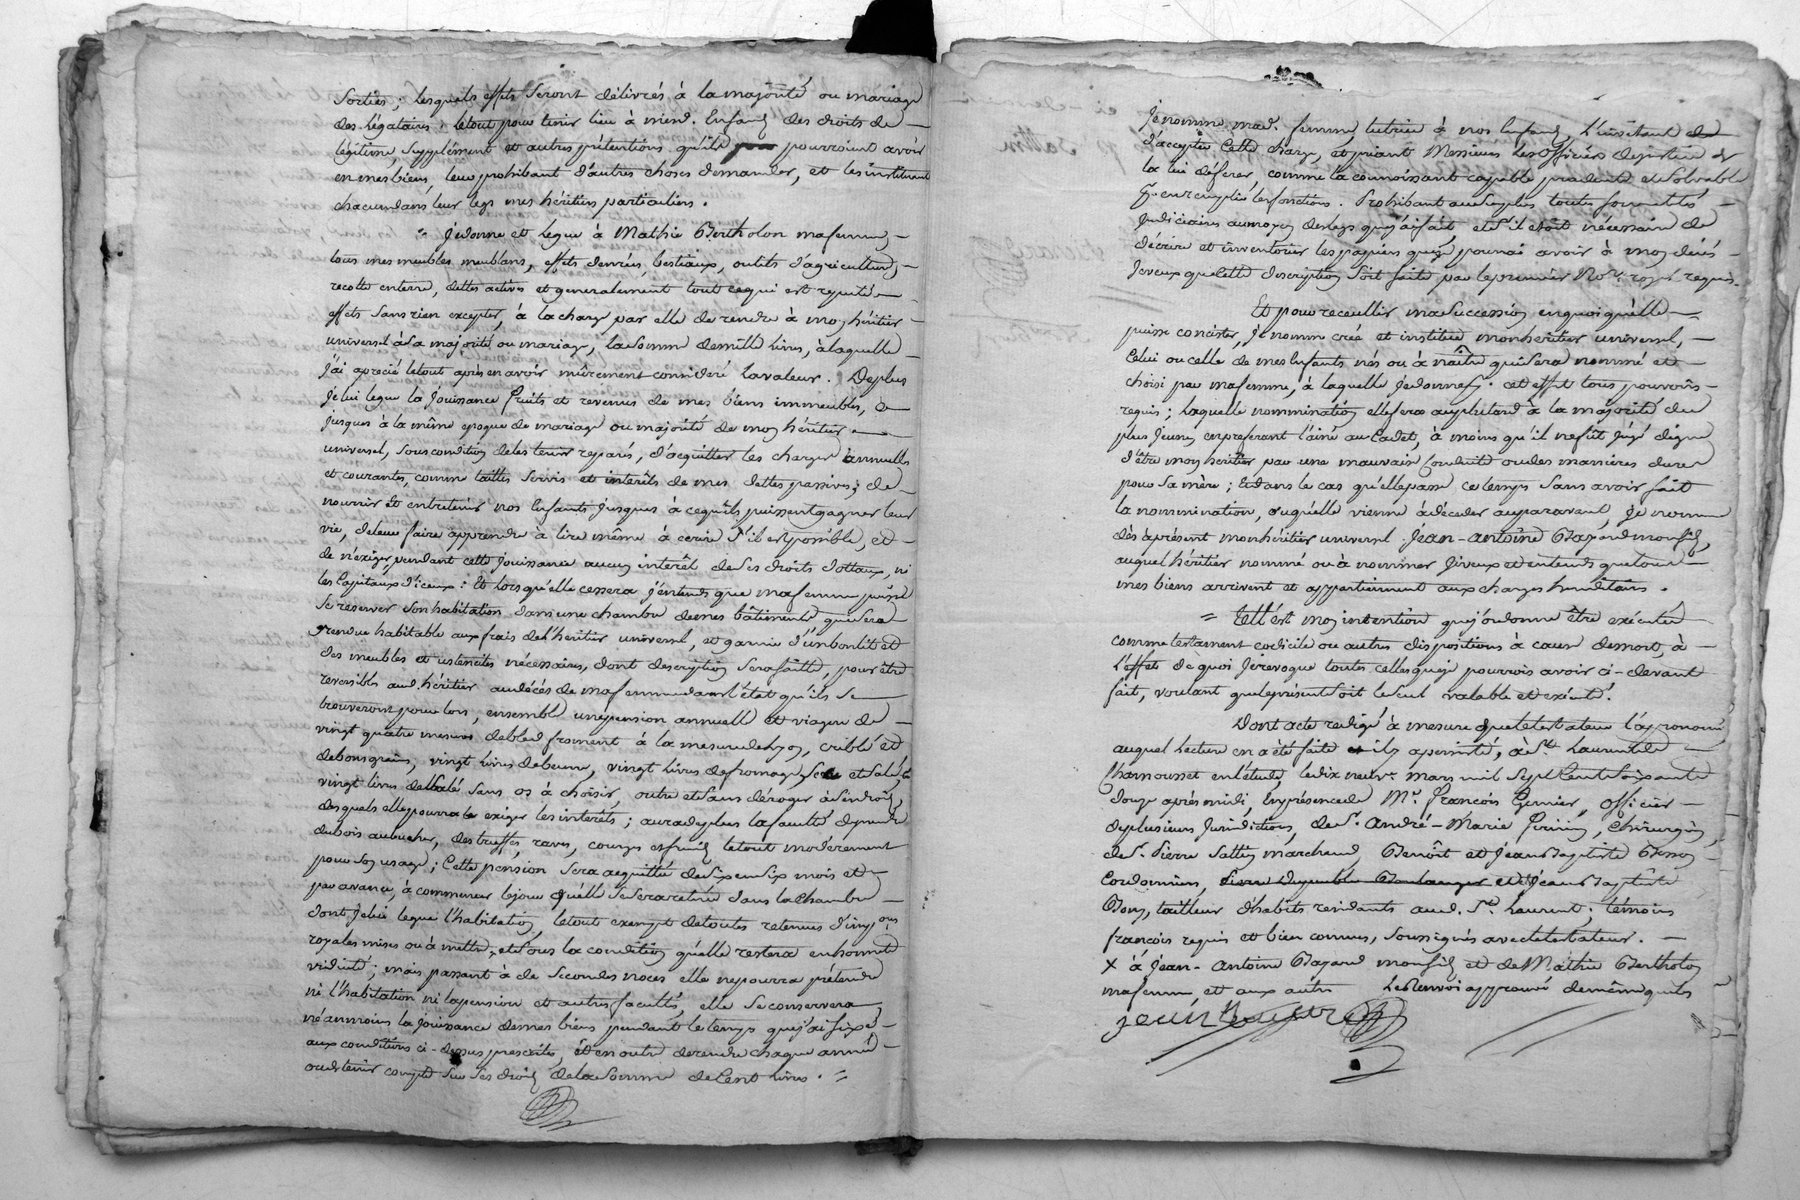 sorties; lesquels effets seront délivrés à la majorité ou mariage
des légataires, letout pour tenir lieu à mesd. Enfans des droits de
légitime, supplément et autres prétentions qu'ils pourroient avoir
en mes biens, leur prohibant d'autres choses demander, et les instituant
chacun dans leur legs mes héritiers particuliers.
= Je donne et legue à Mathie Bertholon ma femme,
tous mes meubles meublans, effets denrées, bestiaux, outils d'agriculture,
recolte enterre, dettes actives et generalement tout ce qui est reputé
effets sans rien excepter, à la charge par elle de rendre à mon héritier
universel à sa majorité ou mariage, la somme de mille livres, à laquelle
j'ai aprecié letout après en avoir mûrement consideré la valeur. Deplus
je lui legue la jouissance fruits et revenus de mes biens immeubles,
jusques à la même epoque de mariage ou majorité de mon héritier
universel, sous condition de les tenir reparés, d'acquitter les charges annuelles
et courantes, comme tailles servis et intérêts de mes dettes passives; de
nourrir et entretenir nos Enfants jusques à ce qu'ils puissent gagner leur
vie, de leur faire apprendre à lire même à ecrire s'il est possible, et
de n'exiger pendant cette jouissance aucun intérêt de ses droits dottaux, ni
les Capitaux d'iceux: Et lorsqu'elle cessera j'entends que ma femme puisse
se réserver son habitation dans une chambre de mes bâtiments qui sera
rendue habitable aux frais de l'héritier universel, et garnie d'un bon lit et
des meubles et ustenciles nécessaires, dont description sera faitte, pour être
reversibles aud. héritier au décés de ma femme dans l'état qu'ils se
trouveront pour lors, ensemble une pension annuelle et viagere de
vingt quatre mesures de bled froment à la mesure de Lyon, criblé et
de bons grains, vingt livres de beurre, vingt livres de fromage, sec et salé,
vingt livres de salé sans os à choisir, outre et sans déroger à ses droits,
desquels elle pourra exiger les intérêts; aura deplus la faculté de prendre
du bois au bucher, des truffes, raves, courges et fruits letout modérement
pour son usage; Cette pension sera acquittée de six en six mois et
par avance, à commencer le jour qu'elle se sera retirée dans la chambre
dont je lui legue l'habitation, letout exempt de toutes retenues d'impons
royales mises ou à mettre, et sous la condition qu'elle restera en honnete
viduité; mais passant à de secondes noces elle ne pourra prétendre
ni l'habitation ni la pension et autres facultés, elle se conservera
néanmoins la jouissance de mes biens pendant le temps que j'ai fixé
aux conditions ci-dessus prescrites, et en outre de rendre chaque année
ou de tenir compte sur ses droits de la somme de Cent livres. =
Je nomme mad. femme tutrice à nos Enfans, L'invitant
d'accepter cette charge, et priant Messieurs Les Officiers de justice de
la lui déferer, comme la connoissant capable prudente et solvable
pr. en remplir les fonctions. Prohibant au surplus toutes formalités
judiciaires au moyen des legs que j'ai fait, et s'il etoit nécessaire de
décrire et inventorier les papiers que je pourrai avoir à mon décés
je veux que cette description soit faite par le premier Nore. royal requis.
Et pour recueillir ma succession en quoi qu'elle
puisse consister, je nomme créé et institue mon héritier universel,
celui ou celle de mes Enfants nés ou à naître qui sera nommé et
choisi par ma femme, à laquelle je donne pr. cet effet tous pouvoirs
requis; laquelle nommination elle fera au plutard à la majorité du
plus jeune en preferant l'ainé au Cadet, à moins qu'il ne fût jugé digne
d'être mon héritier par une mauvaise conduite ou des manières dures
pour sa mère; Et dans le cas qu'elle passe ce temps sans avoir fait
la nommination, ou qu'elle vienne à décéder auparavant, je nomme
dès à présent mon héritier universel Jean-antoine Bazand mon fils,
auquel héritier nommé ou à nommer je veux et entends que tous
mes biens arrivent et appartiennent aux charges hereditaires.
= Telle est mon intention que j'ordonne être exécutée
comme testament codicile ou autres dispositions à cause de mort, à
l'effet de quoi je revoque toutes celles que je pourrois avoir ci-devant
fait, voulant que le présent soit le seul valable et exécuté.
Dont acte redigé à mesure que le testateur l'a prononcé
auquel lecture en a été faite et il y a persisté, à St. Laurent de
Chamousset en l'étude, le dix neuf mars mil sept Cent soixante
douze après midi, En présence de Me. François Grenier, officier
de plusieurs Juridictions, de Sr. André-Marie Ferriere, chirurgien,
de Sr. Pierre Sattin marchand, Benoît et Jean Baptiste Besson
Cordonniers, et Jean Baptiste
Bory, tailleur d'habits residants aud. St. Laurent; témoins
françois requis et bien connus, soussignés avec le testateur.
X à Jean-Antoine Bazand mon fils et de Mathie Bertholon
ma femme, et aux autres Les Renvoi approuvé de même que les